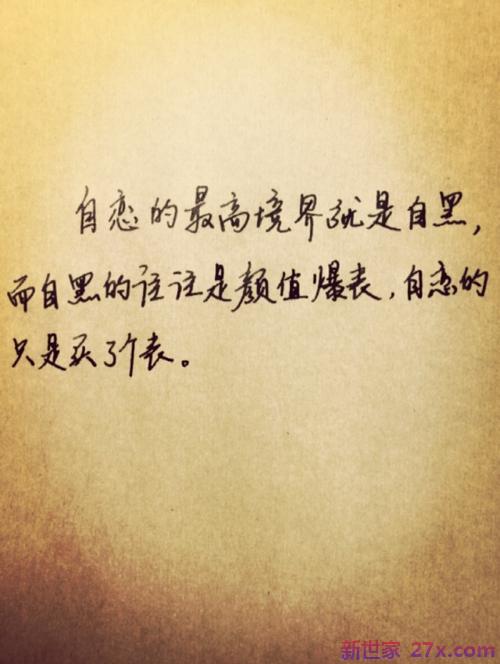 自恋的最高境界就是自黑,
而自黑的往往是颜值爆表,自恋的
只是买了个表。
新世家 27x.com